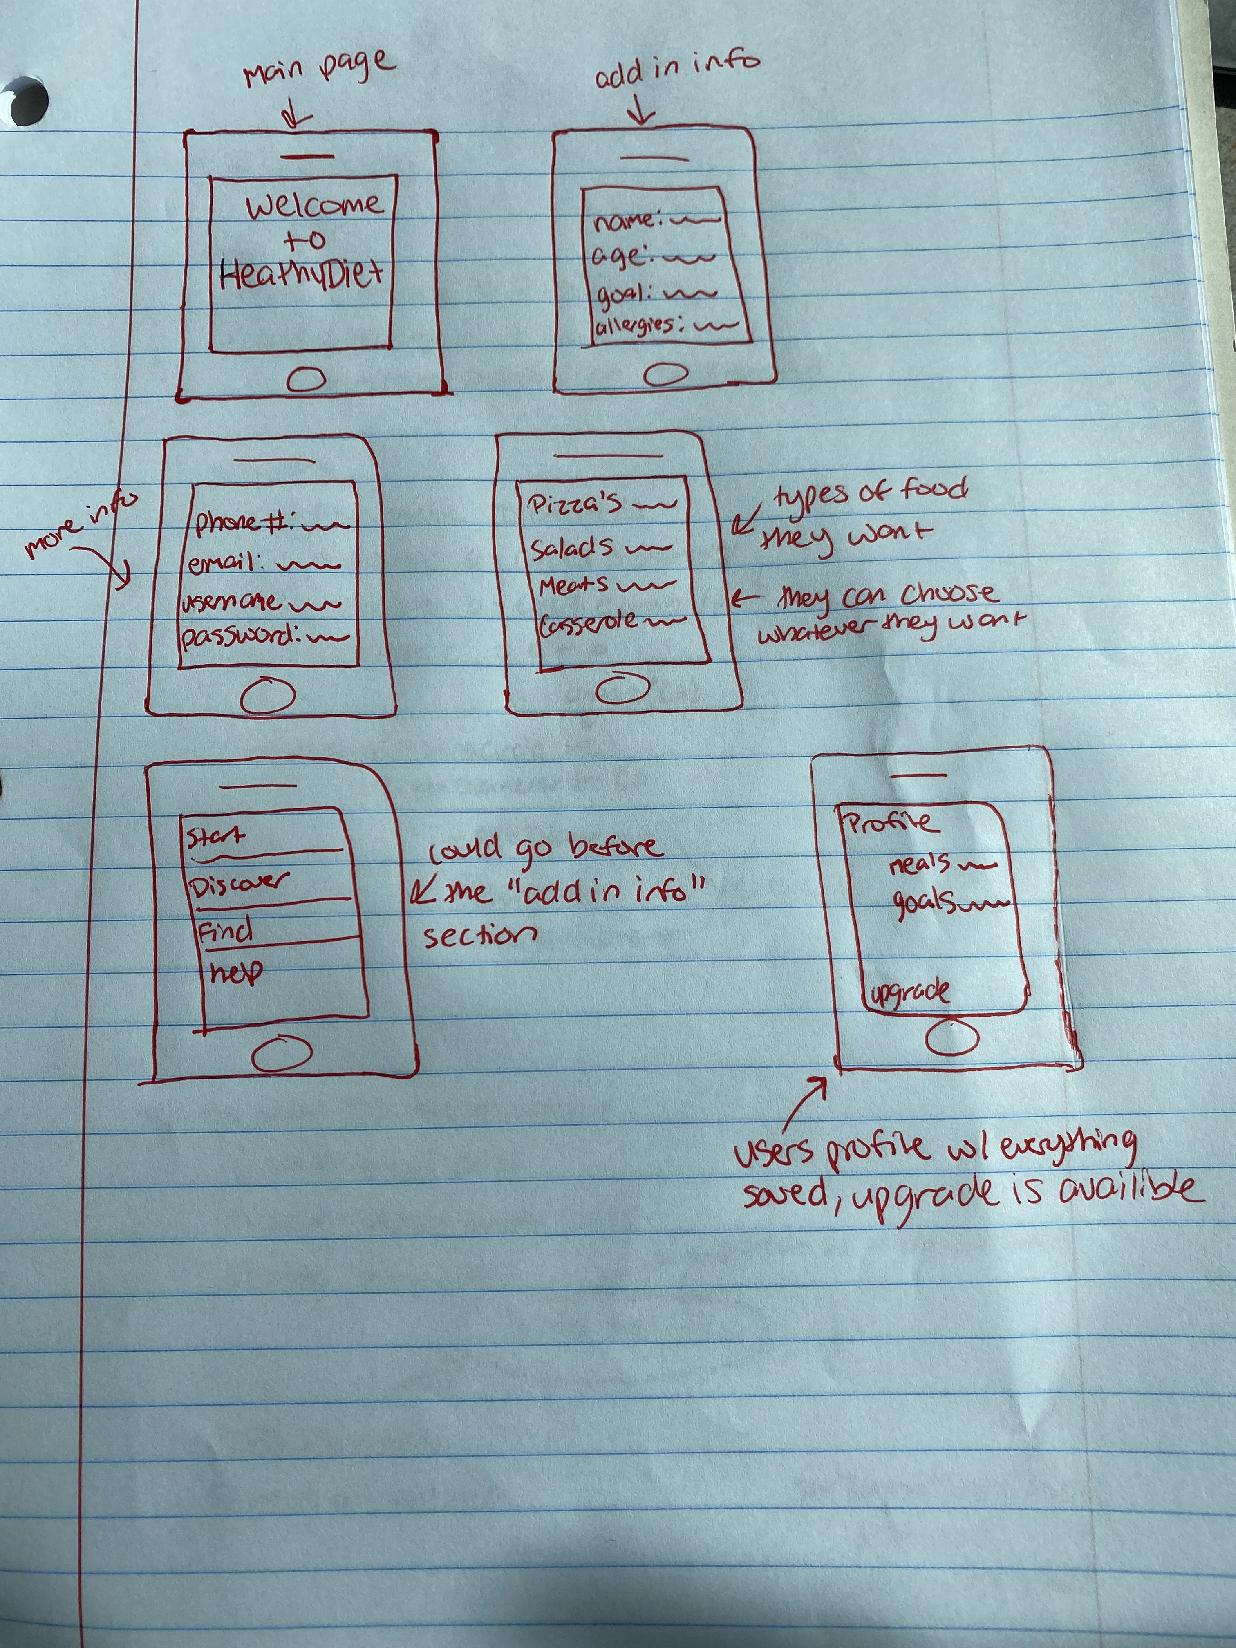 Main page
welcome
to
HeathyDiet
add in info
name:
age:
goal:
allergies:
more info
phone #:
email:
username
password:
Pizza's
Salads
Meats
Casserole
types of food
they want
they can choose
whatever they want
Start
Discover
Find
help
could go before
the "add in info"
section
Profile
meals
goals
upgrade
users profile w/ everything
saved, upgrade is availible